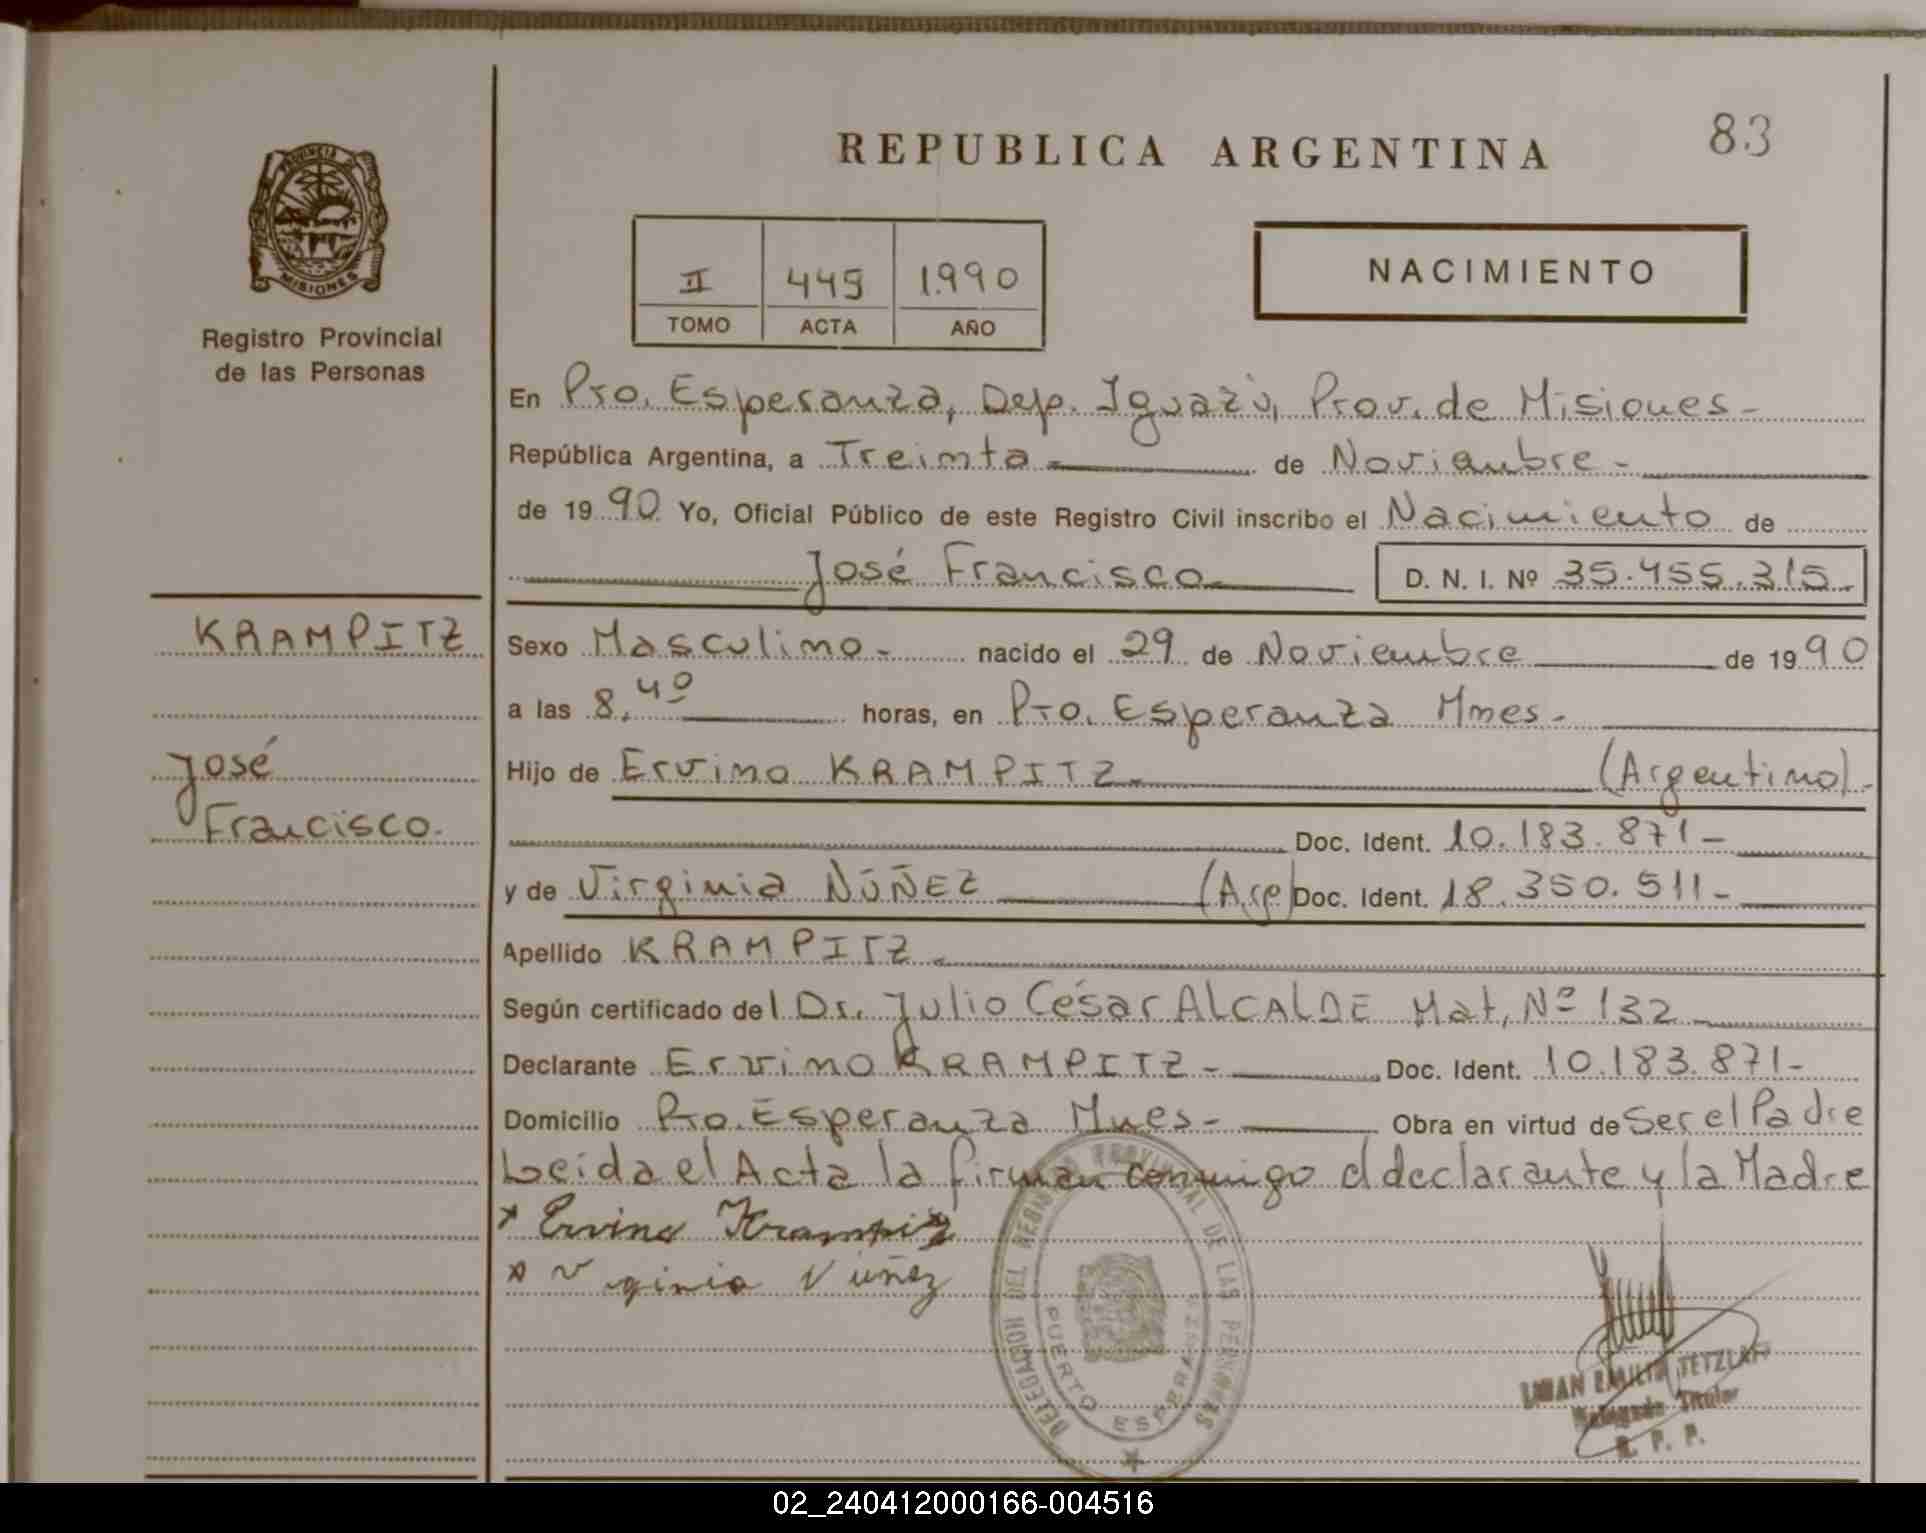 REPUBLICA ARGENTINA
83
PROVINCIA DE
MISIONES
Registro Provincial
de las Personas
II 449 1.990
TOMO ACTA AÑO
NACIMIENTO
En Pto. Esperanza, Dep. Iguazú, Prov. de Misiones-
República Argentina, a Treinta- de Noviembre-
de 1990 Yo, Oficial Público de este Registro Civil inscribo el Nacimiento de
José Francisco- D. N. I. Nº 35.455.315-
KRAMPITZ
José
Francisco.
Sexo Masculino- nacido el 29 de Noviembre de 1990
a las 8,40 horas, en Pto. Esperanza Mnes-
Hijo de Ervino KRAMPITZ- (Argentino)-
Doc. Ident. 10.183.871-
y de Virginia NÚÑEZ (Arg) Doc. Ident. 18.350.511-
Apellido KRAMPITZ-
Según certificado del Dr. Julio César ALCALDE Mat. Nº 132
Declarante Ervino KRAMPITZ- Doc. Ident. 10.183.871-
Domicilio Pto. Esperanza Mnes- Obra en virtud de Ser el Padre
Leída el Acta la firman conmigo el declarante y la Madre
x Ervino Krampitz
x Virginia Núñez
DELEGACION DEL REGISTRO PROVINCIAL DE LAS PERSONAS
PUERTO ESPERANZA
EMILIA TETZLAFF
Delegada Titular
R. P. P.
02_240412000166-004516